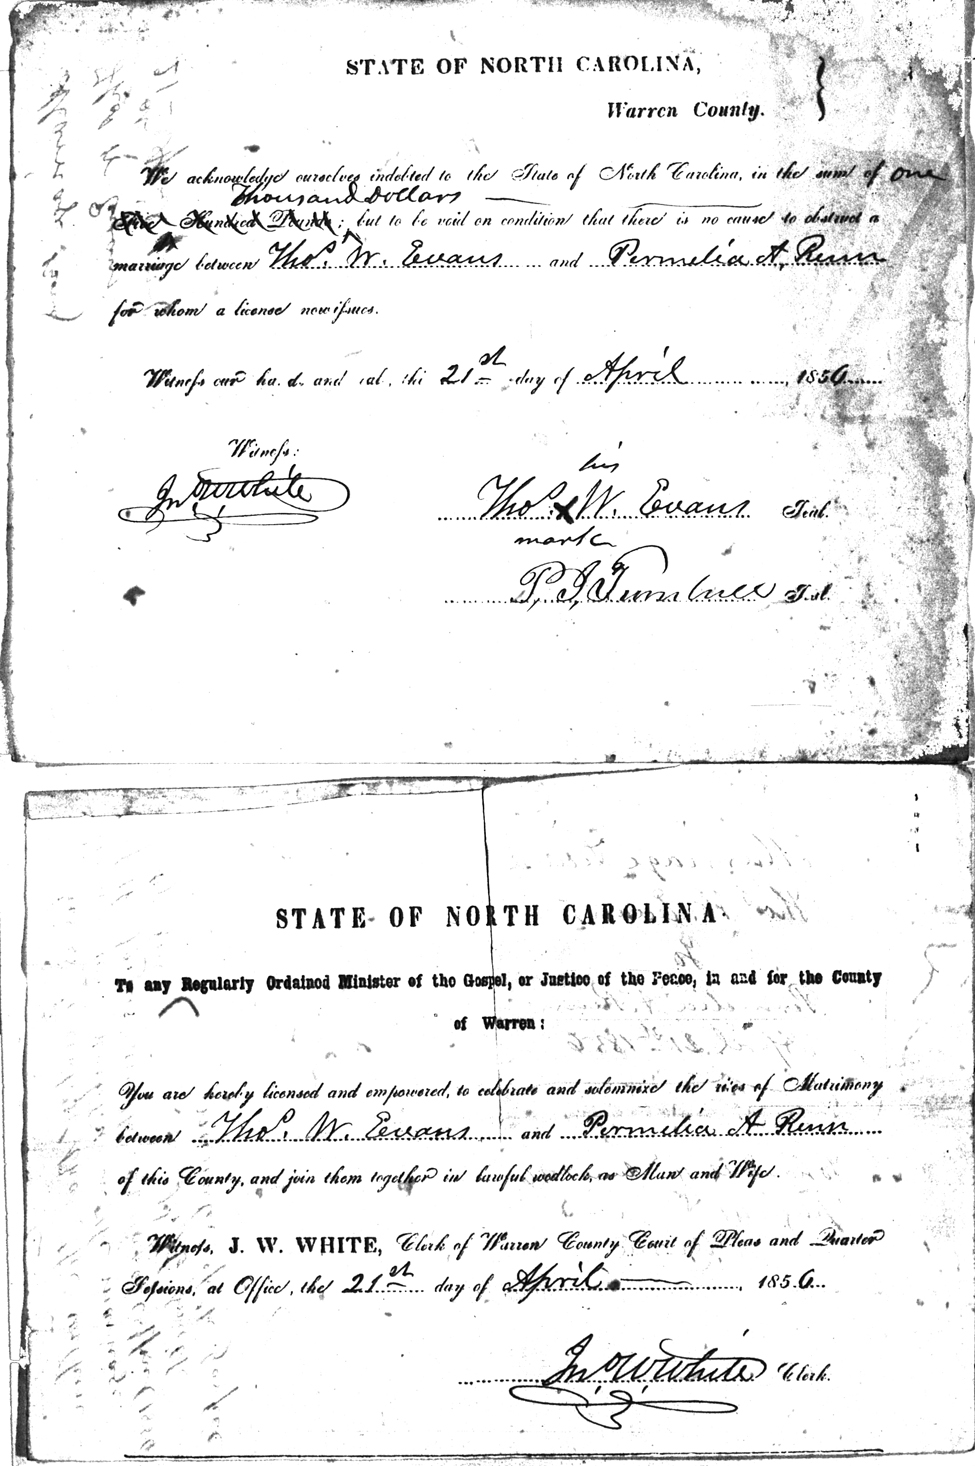 STATE OF NORTH CAROLINA,
Warren County.
We acknowledge ourselves indebted to the State of North Carolina, in the sum of one
Thousand Dollars
Five Hundred Pounds; but to be void on condition that there is no cause to obstruct a
marriage between Thos. W. Evans and Permelia A, Renn
for whom a license now issues.
Witness our hands and seal, the 21st day of April, 1856
Witness:
Jno W White
his
Thos. x W. Evans Seal.
mark
P, J, Turnbull Seal.
STATE OF NORTH CAROLINA
To any Regularly Ordained Minister of the Gospel, or Justice of the Peace, in and for the County
of Warren:
You are hereby licensed and empowered, to celebrate and solemnize the rites of Matrimony
between Thos. W. Evans and Permelia A Renn
of this County, and join them together in lawful wedlock, as Man and Wife.
Witness, J. W. WHITE, Clerk of Warren County Court of Pleas and Quarter
Sessions, at Office, the 21st day of April, 1856.
Jno W White Clerk.